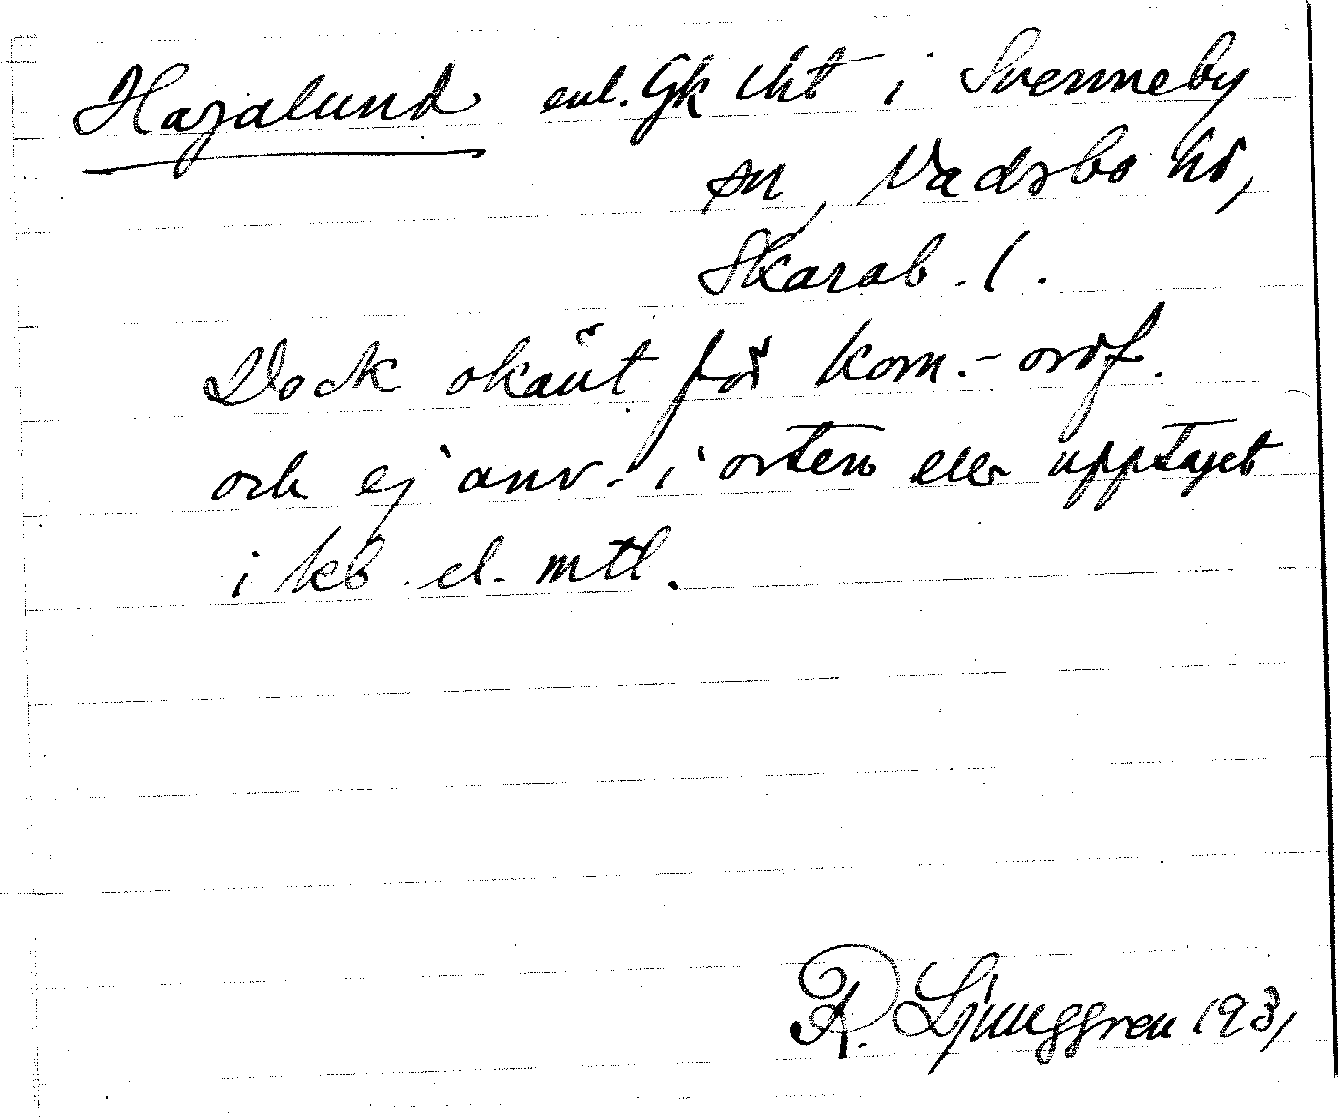 Hagalund enl. Gk tht i Svenneby
sn, Vadsbo hd,
Skarab. l.
Dock okänt för kom.-ordf.
och ej anv. i orten eller upptaget
i kb el. mtl.
R. Ljunggren 1931